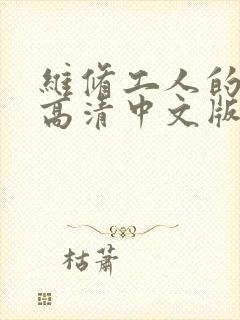 維修工人的
高清中文版
枯蕭